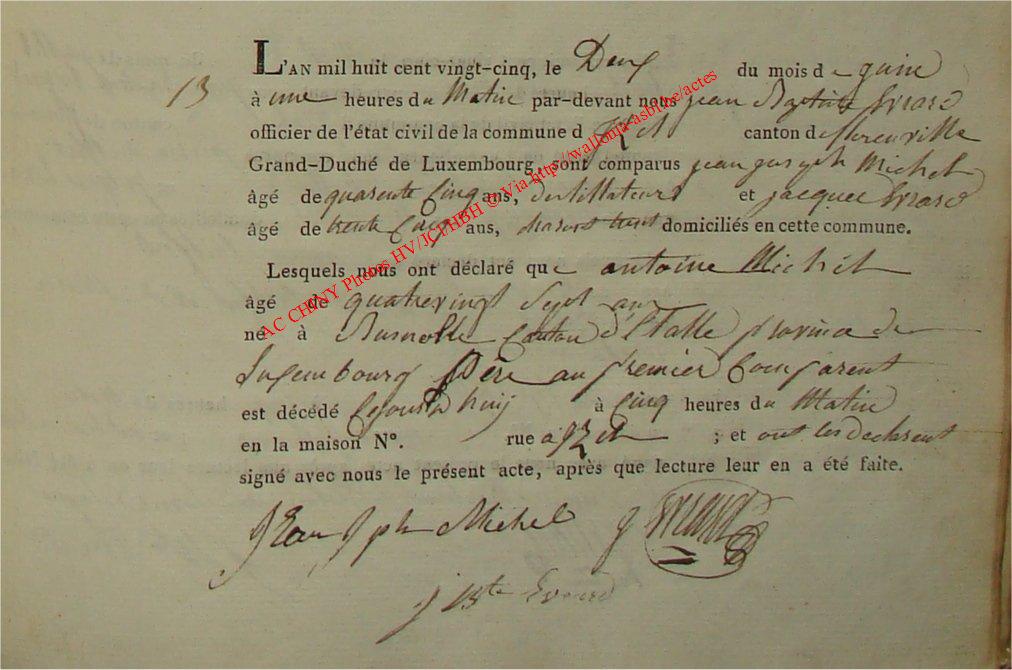 13
L'AN mil huit cent vingt-cinq, le Deux du mois de juin
à une heures du Matin par-devant nous jean Baptiste Evrard
officier de l'état civil de la commune d canton de florenville
Grand-Duché de Luxembourg, sont comparus jean joseph Michel
âgé de quarente Cinq ans, distillateur et jacque Evrard
âgé de trente Cinq ans, domiciliés en cette commune.
Lesquels nous ont déclaré que antoine Michel
âgé de quatrevingt Sept ans
né à Canton d'Etalle province de
Luxembourg Père au premier Comparent
est décédé Cejourdhuij à Cinq heures du Matin
en la maison N°. rue a ; et ont les declarent
signé avec nous le présent acte, après que lecture leur en a été faite.
Jean Jph Michel J Evrard
J Bte Evrard
AC CHINY Photos HV/JCI/HBH © Via http://wallonia-asbl/he/actes